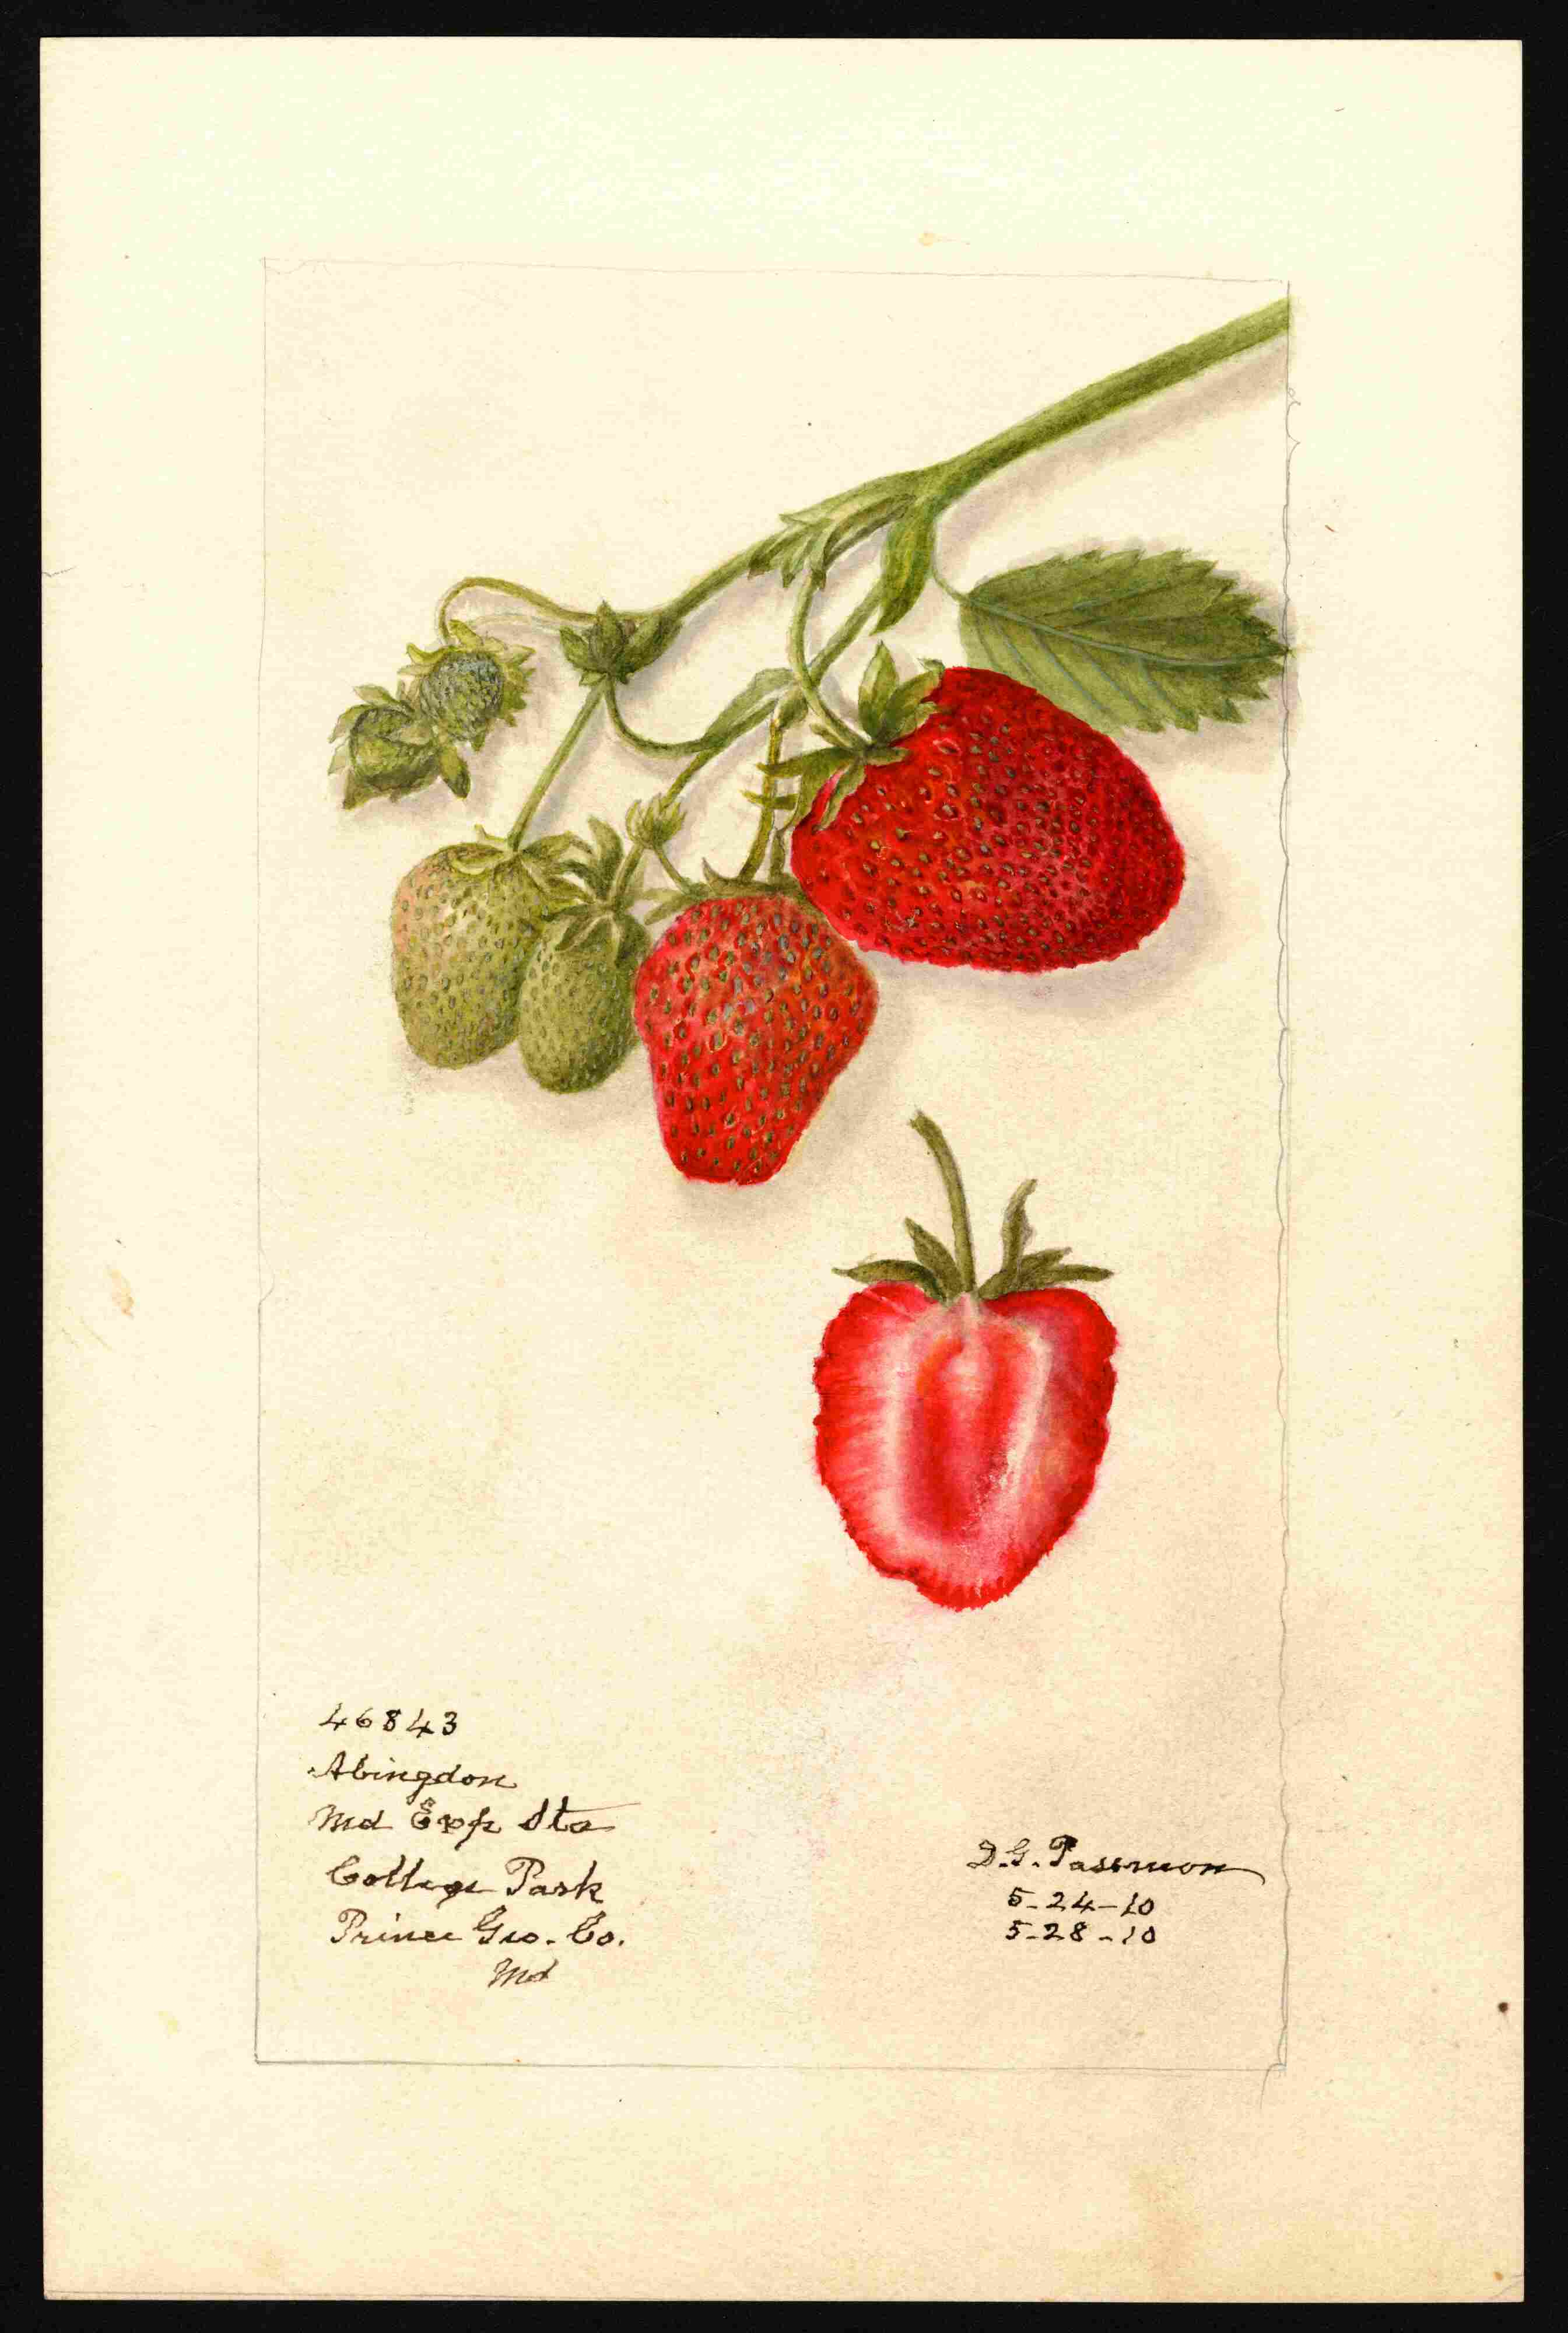 46843
Abingdon
Md Exp Sta
College Park
Prince Geo. Co.
Md
D.G. Passmore
5-24-10
5-28-10